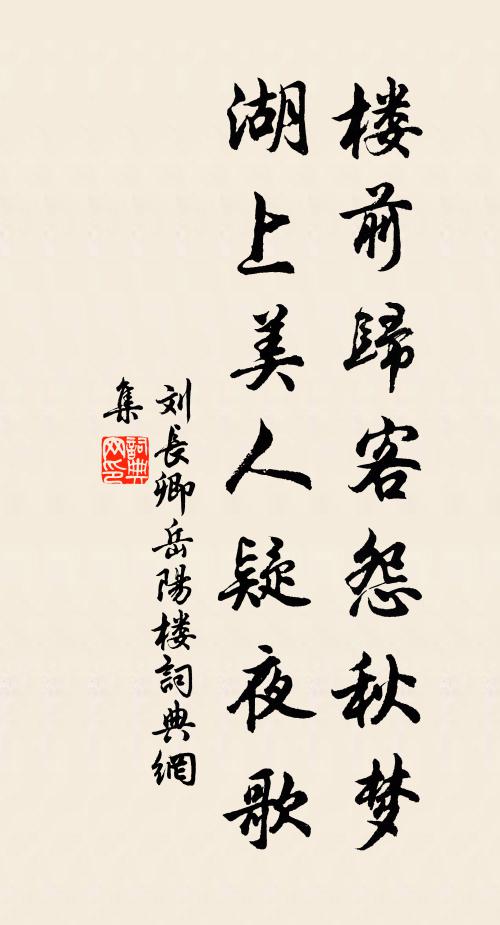 楼前歸客怨秋梦
湖上美人疑夜歌
刘長卿岳陽楼詞典網
集
詞典网印